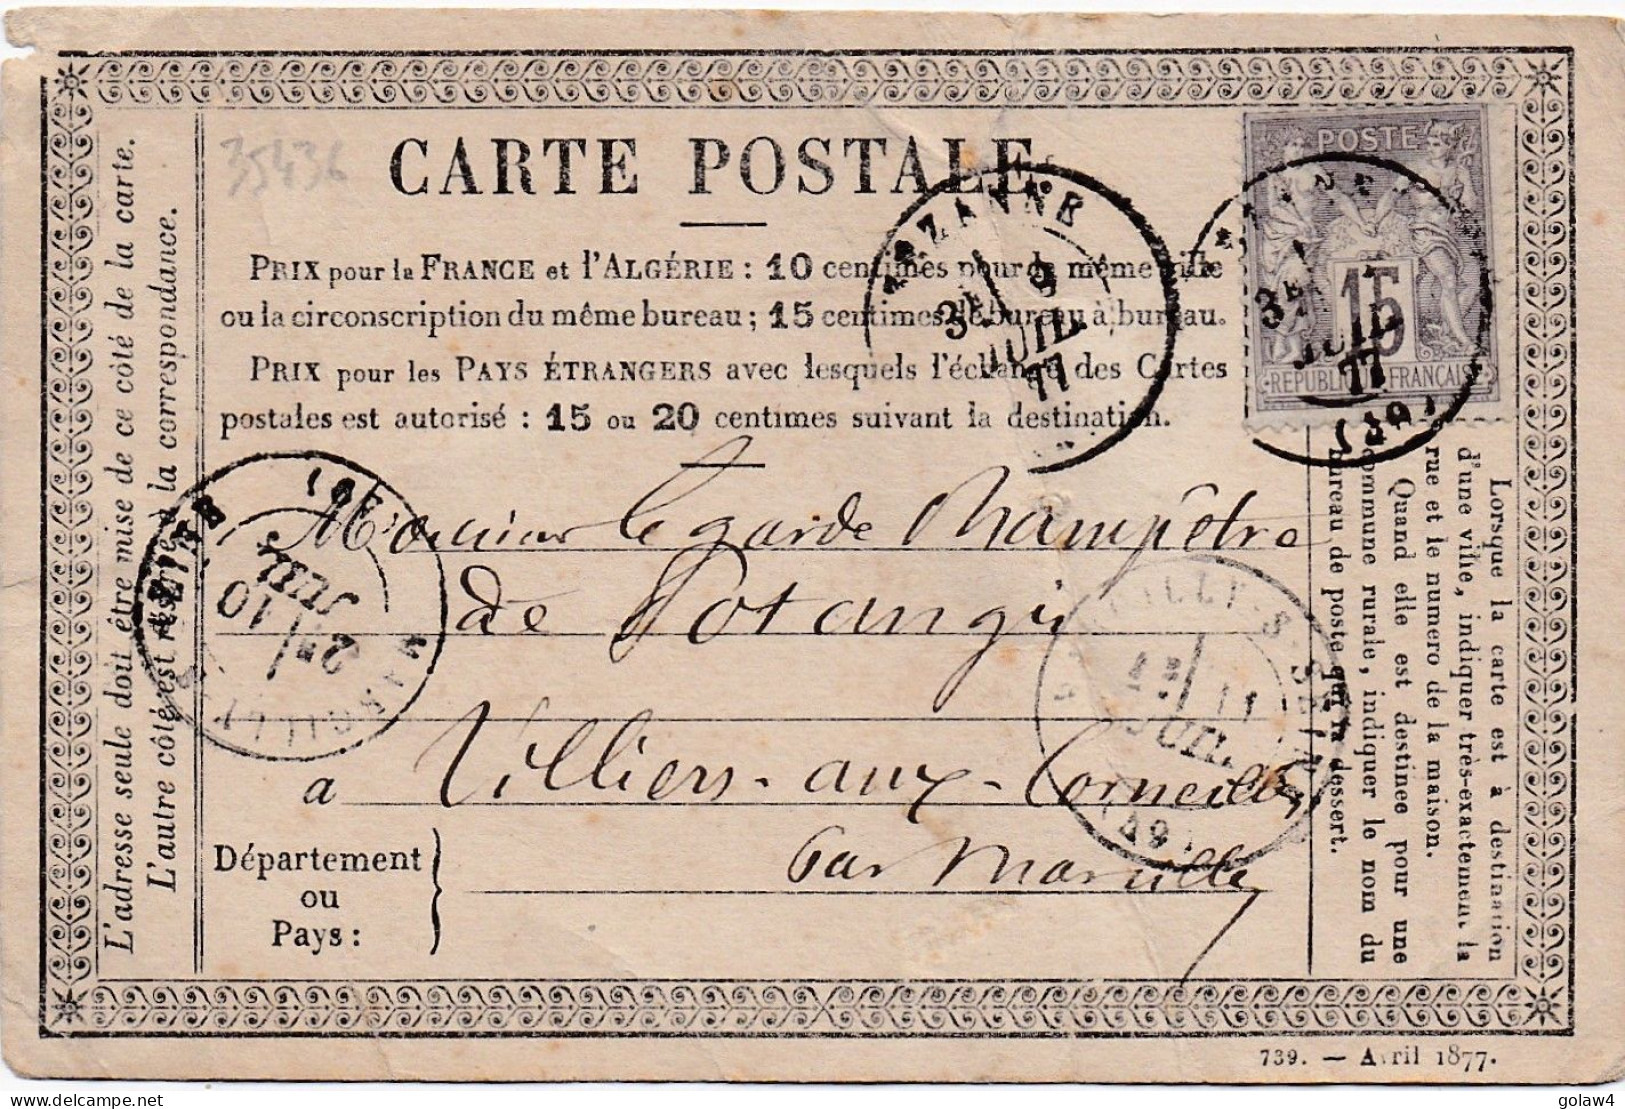 35436
CARTE POSTALE
PRIX pour la FRANCE et l'ALGÉRIE : 10 centimes pour la même ville
ou la circonscription du même bureau ; 15 centimes de bureau à bureau.
PRIX pour les PAYS ÉTRANGERS avec lesquels l'échange des Cartes
postales est autorisé : 15 ou 20 centimes suivant la destination.
L'adresse seule doit être mise de ce côté de la carte.
L'autre côté est réservé à la correspondance.
POSTE
15
REPUBLIQUE FRANÇAISE
3E
JUIL.
77
3E
JUIL
77
Monsieur le garde Champêtre
de Potangis
a Villiers-aux-Corneilles
Par Marcilly
Département
ou
Pays :
2E 10
JUIL
MARCILLY
MARCILLY-S-SEINE
1E 11
JUIL.
Lorsque la carte est à destination
d'une ville, indiquer très-exactement la
rue et le numéro de la maison.
Quand elle est destinée pour une
commune rurale, indiquer le nom du
bureau de poste qui la dessert.
739. — Avril 1877.
delcampe.net
golaw4